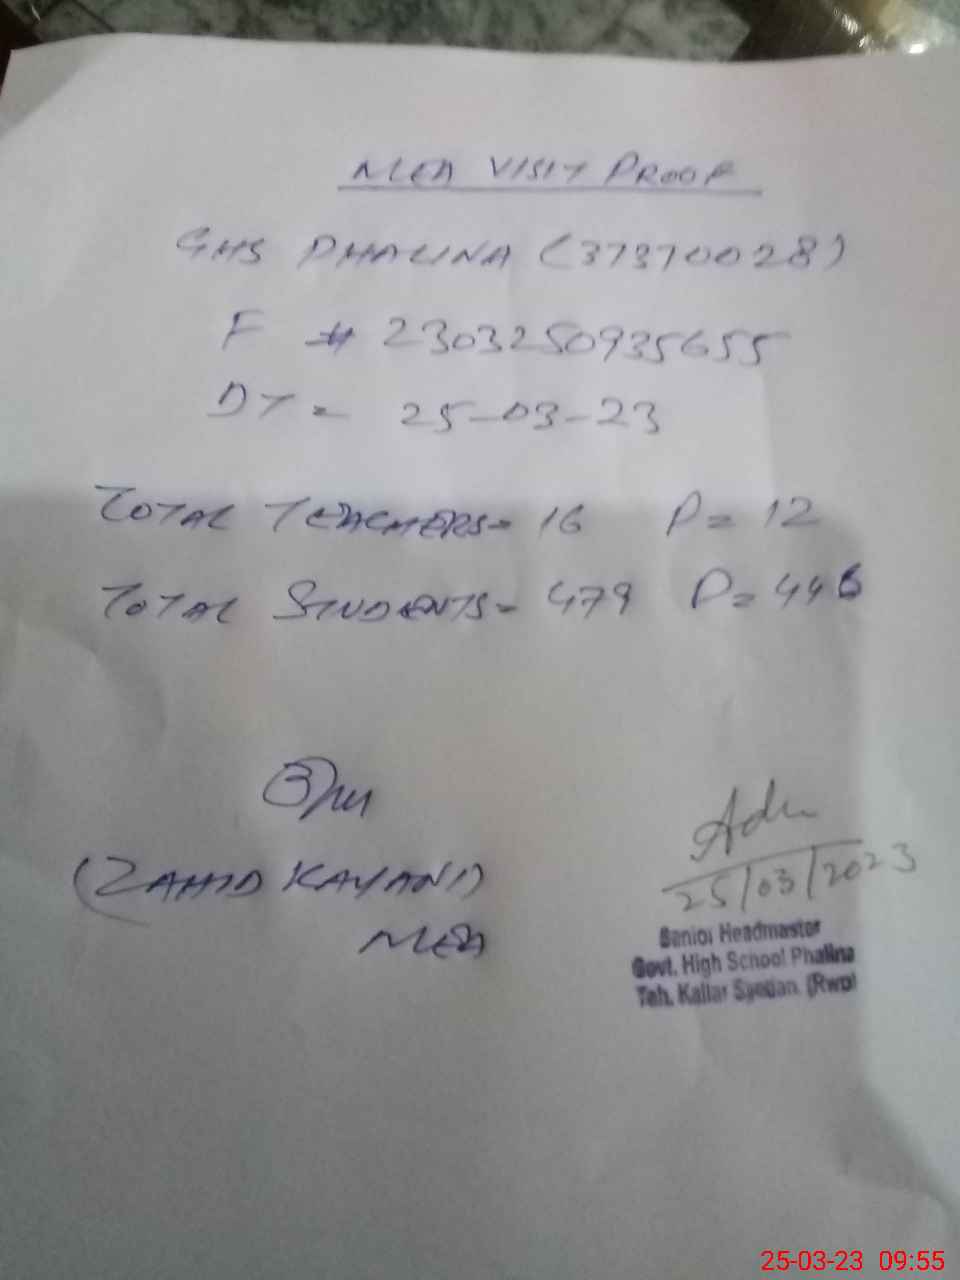 MEA VISIT PROOF
GHS PHALINA (37370028)
F # 2303250935655
DT = 25-03-23
TOTAL TEACHERS= 16 P= 12
TOTAL STUDENTS= 479 P= 446
(ZAHID KAYANI)
MEA
25/03/2023
Senior Headmaster
Govt. High School Phalina
Teh. Kallar Syedan. (Rwp)
25-03-23 09:55